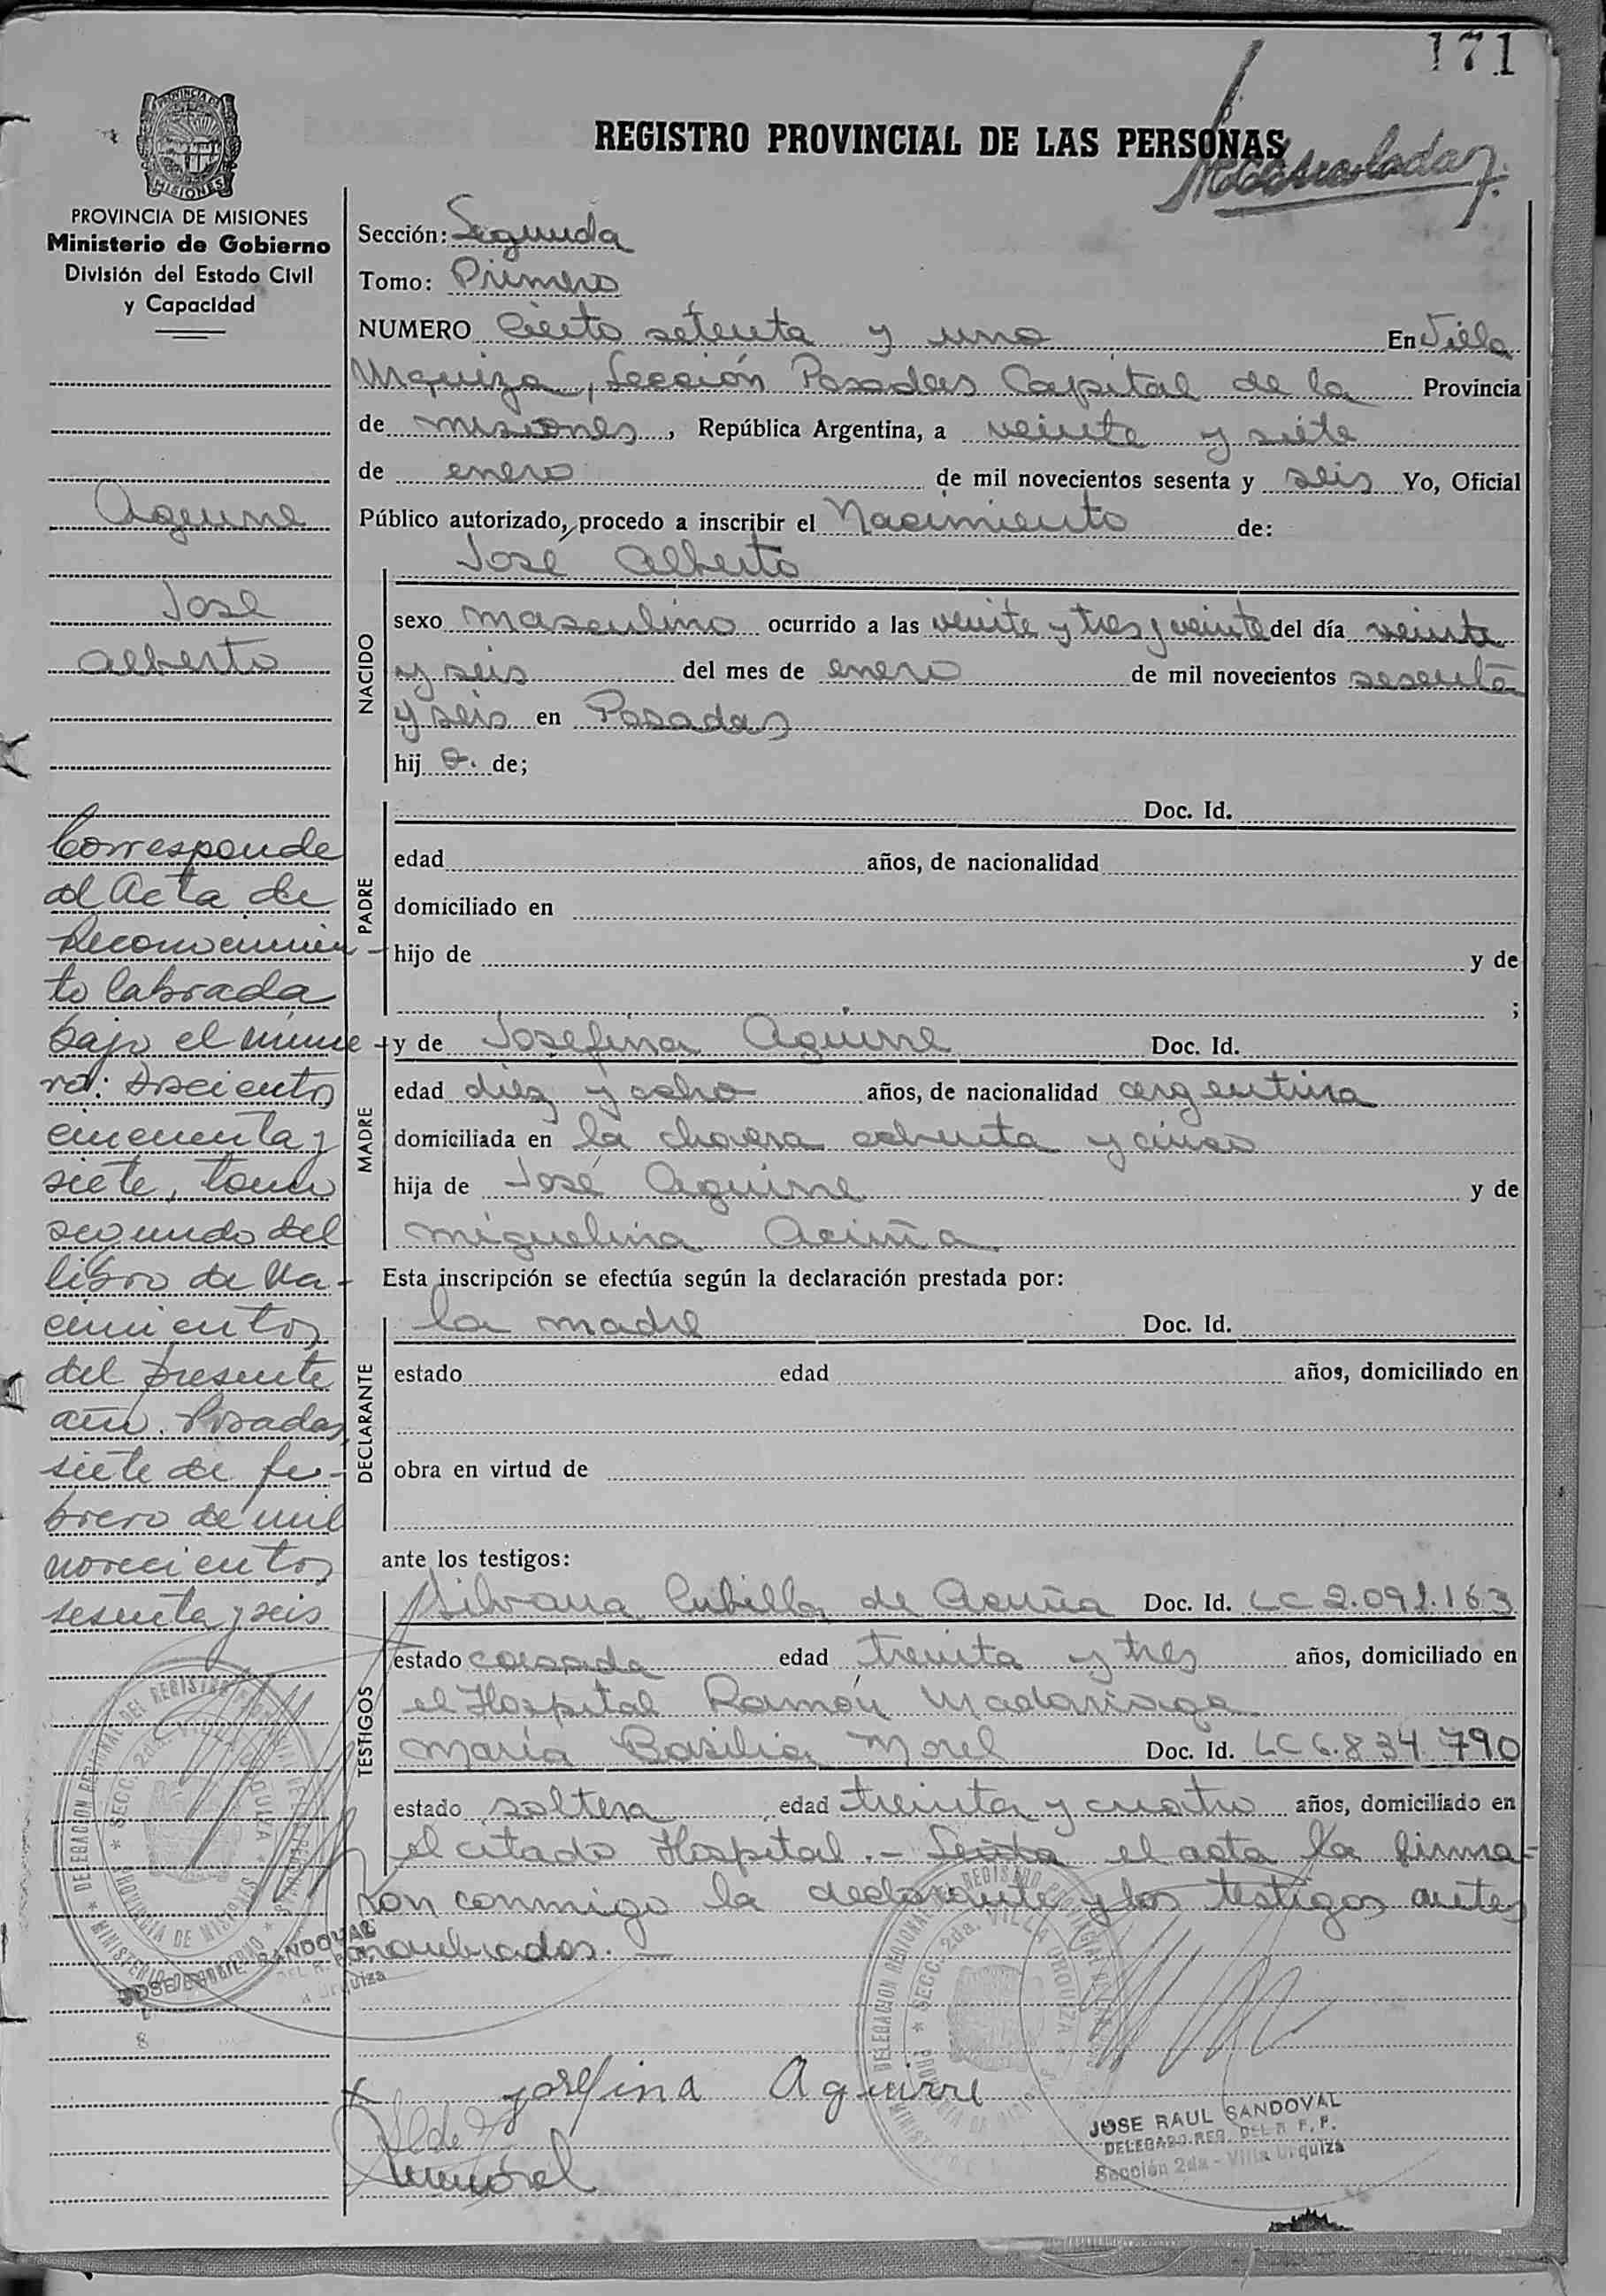 171
REGISTRO PROVINCIAL DE LAS PERSONAS
PROVINCIA DE MISIONES
Ministerio de Gobierno
División del Estado Civil
y Capacidad
Aguirre
José
Alberto
Corresponde
al Acta de
Reconocimien-
to labrada
bajo el núme-
ro: Doscientos
cincuenta y
siete, tomo
segundo del
libro de Na-
cimientos
del presente
año. Posadas,
siete de fe-
brero de mil
novecientos
sesenta y seis
Sección: Segunda
Tomo: Primero
NUMERO Ciento setenta y uno En Villa
Urquiza, Sección Posadas Capital de la Provincia
de Misiones, República Argentina, a veinte y siete
de enero de mil novecientos sesenta y seis Yo, Oficial
Público autorizado, procedo a inscribir el Nacimiento de:
José Alberto
NACIDO
sexo masculino ocurrido a las veinte y tres y veinte del día veinte
y seis del mes de enero de mil novecientos sesenta
y seis en Posadas
hij o. de;
PADRE
Doc. Id.
edad años, de nacionalidad
domiciliado en
hijo de y de
;
MADRE
y de Josefina Aguirre Doc. Id.
edad diez y ocho años, de nacionalidad argentina
domiciliada en la chacra ochenta y cinco
hija de José Aguirre y de
Miguelina Acuña
Esta inscripción se efectúa según la declaración prestada por:
DECLARANTE
la madre Doc. Id.
estado edad años, domiciliado en
obra en virtud de
ante los testigos:
TESTIGOS
Silvana Cubilla de Acuña Doc. Id. LC 2.091.163
estado casada edad treinta y tres años, domiciliado en
el Hospital Ramón Madariaga
María Basilia Morel Doc. Id. LC 6.834.790
estado soltera edad treinta y cuatro años, domiciliado en
el citado Hospital.- el acta la firma-
ron conmigo la declarante y los testigos antes
nombrados.
x Josefina Aguirre
JOSE RAUL SANDOVAL
DELEGADO REG. DEL R. P. P.
Sección 2da - Villa Urquiza